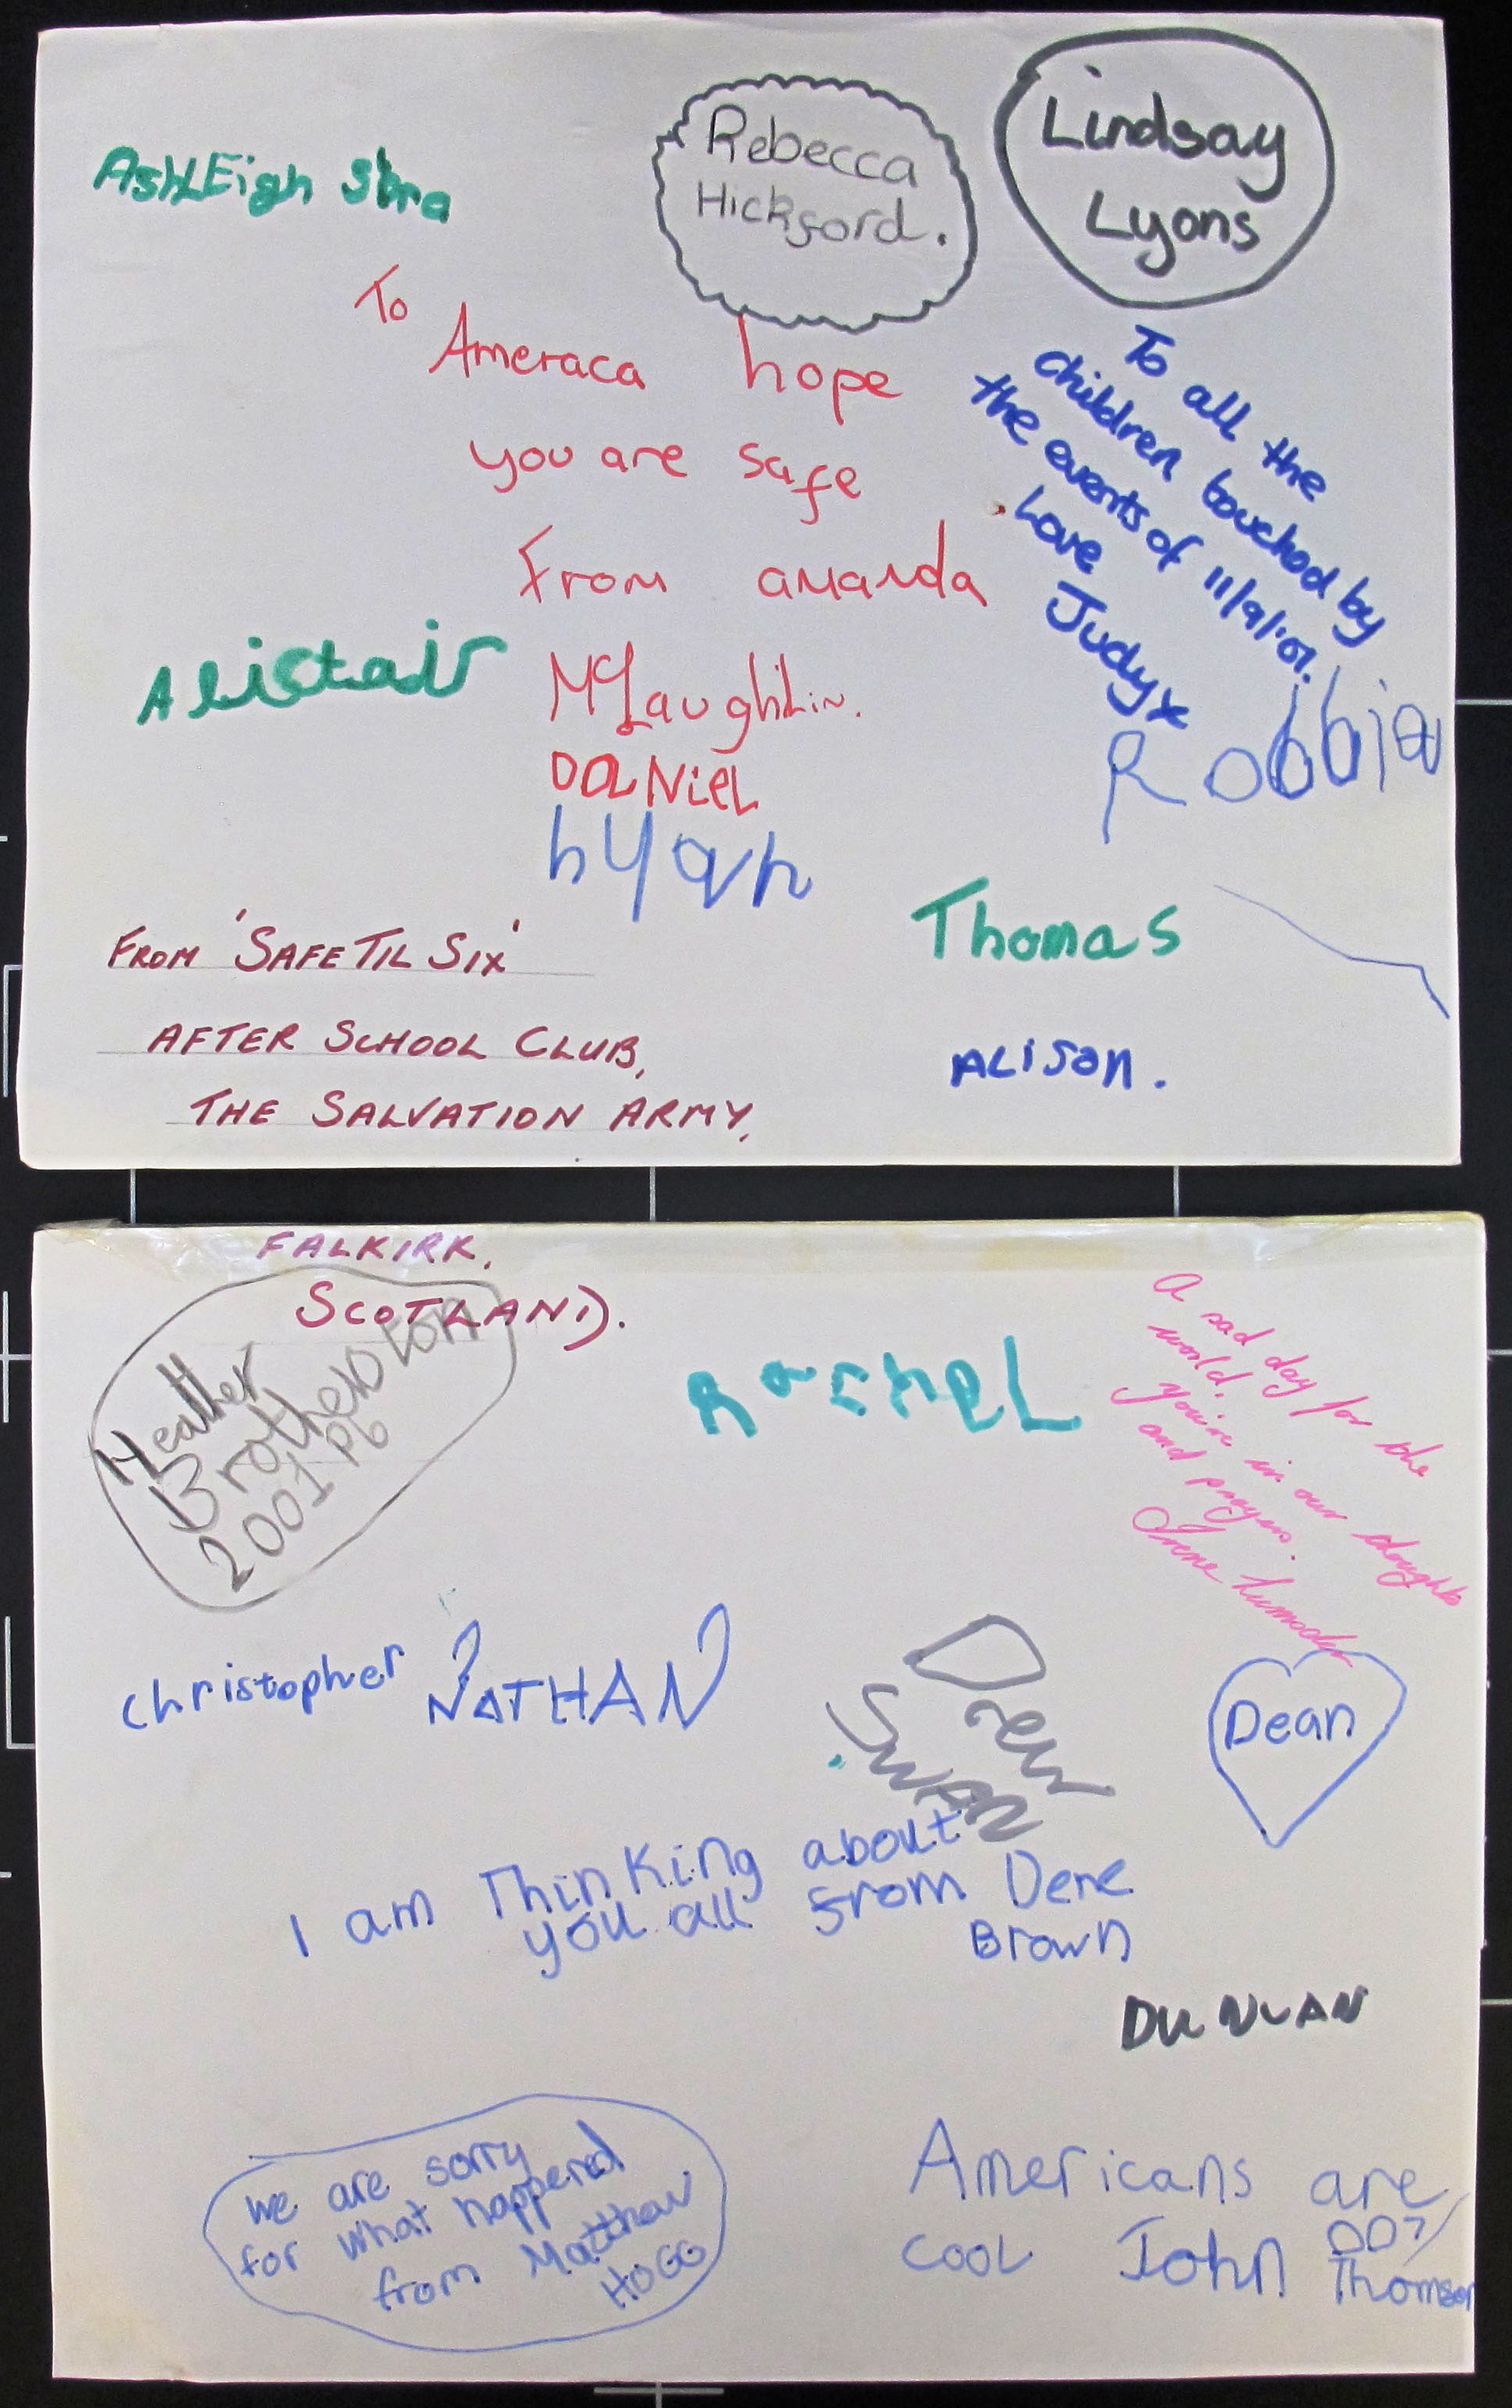 Lindsay
Lyons
Rebecca
Hickford.
AsHLEigh
To
Ameraca hope
you are safe
From amanda
McLaughLin.
DaNieL
To all the
children touched by
the events of 11/9/'01.
Love
Judy x
Robbie
AListair
Thomas
ALison.
FROM 'SAFE TIL SIX'
AFTER SCHOOL CLUB,
THE SALVATION ARMY,
FALKIRK,
SCOTLAND.
Heather
Brotherston
2001 P6
RacheL
A sad day for the
world.
You're in our thoughts
and prayers.
Irene
christopher
NATHAN
Drew
SWAN
Dean
I am Thinking about
you all from Dene
Brown
DuNcAN
we are sorry
for what happened
from Matthew
HOGG
Americans are
cool John 007
Thomson